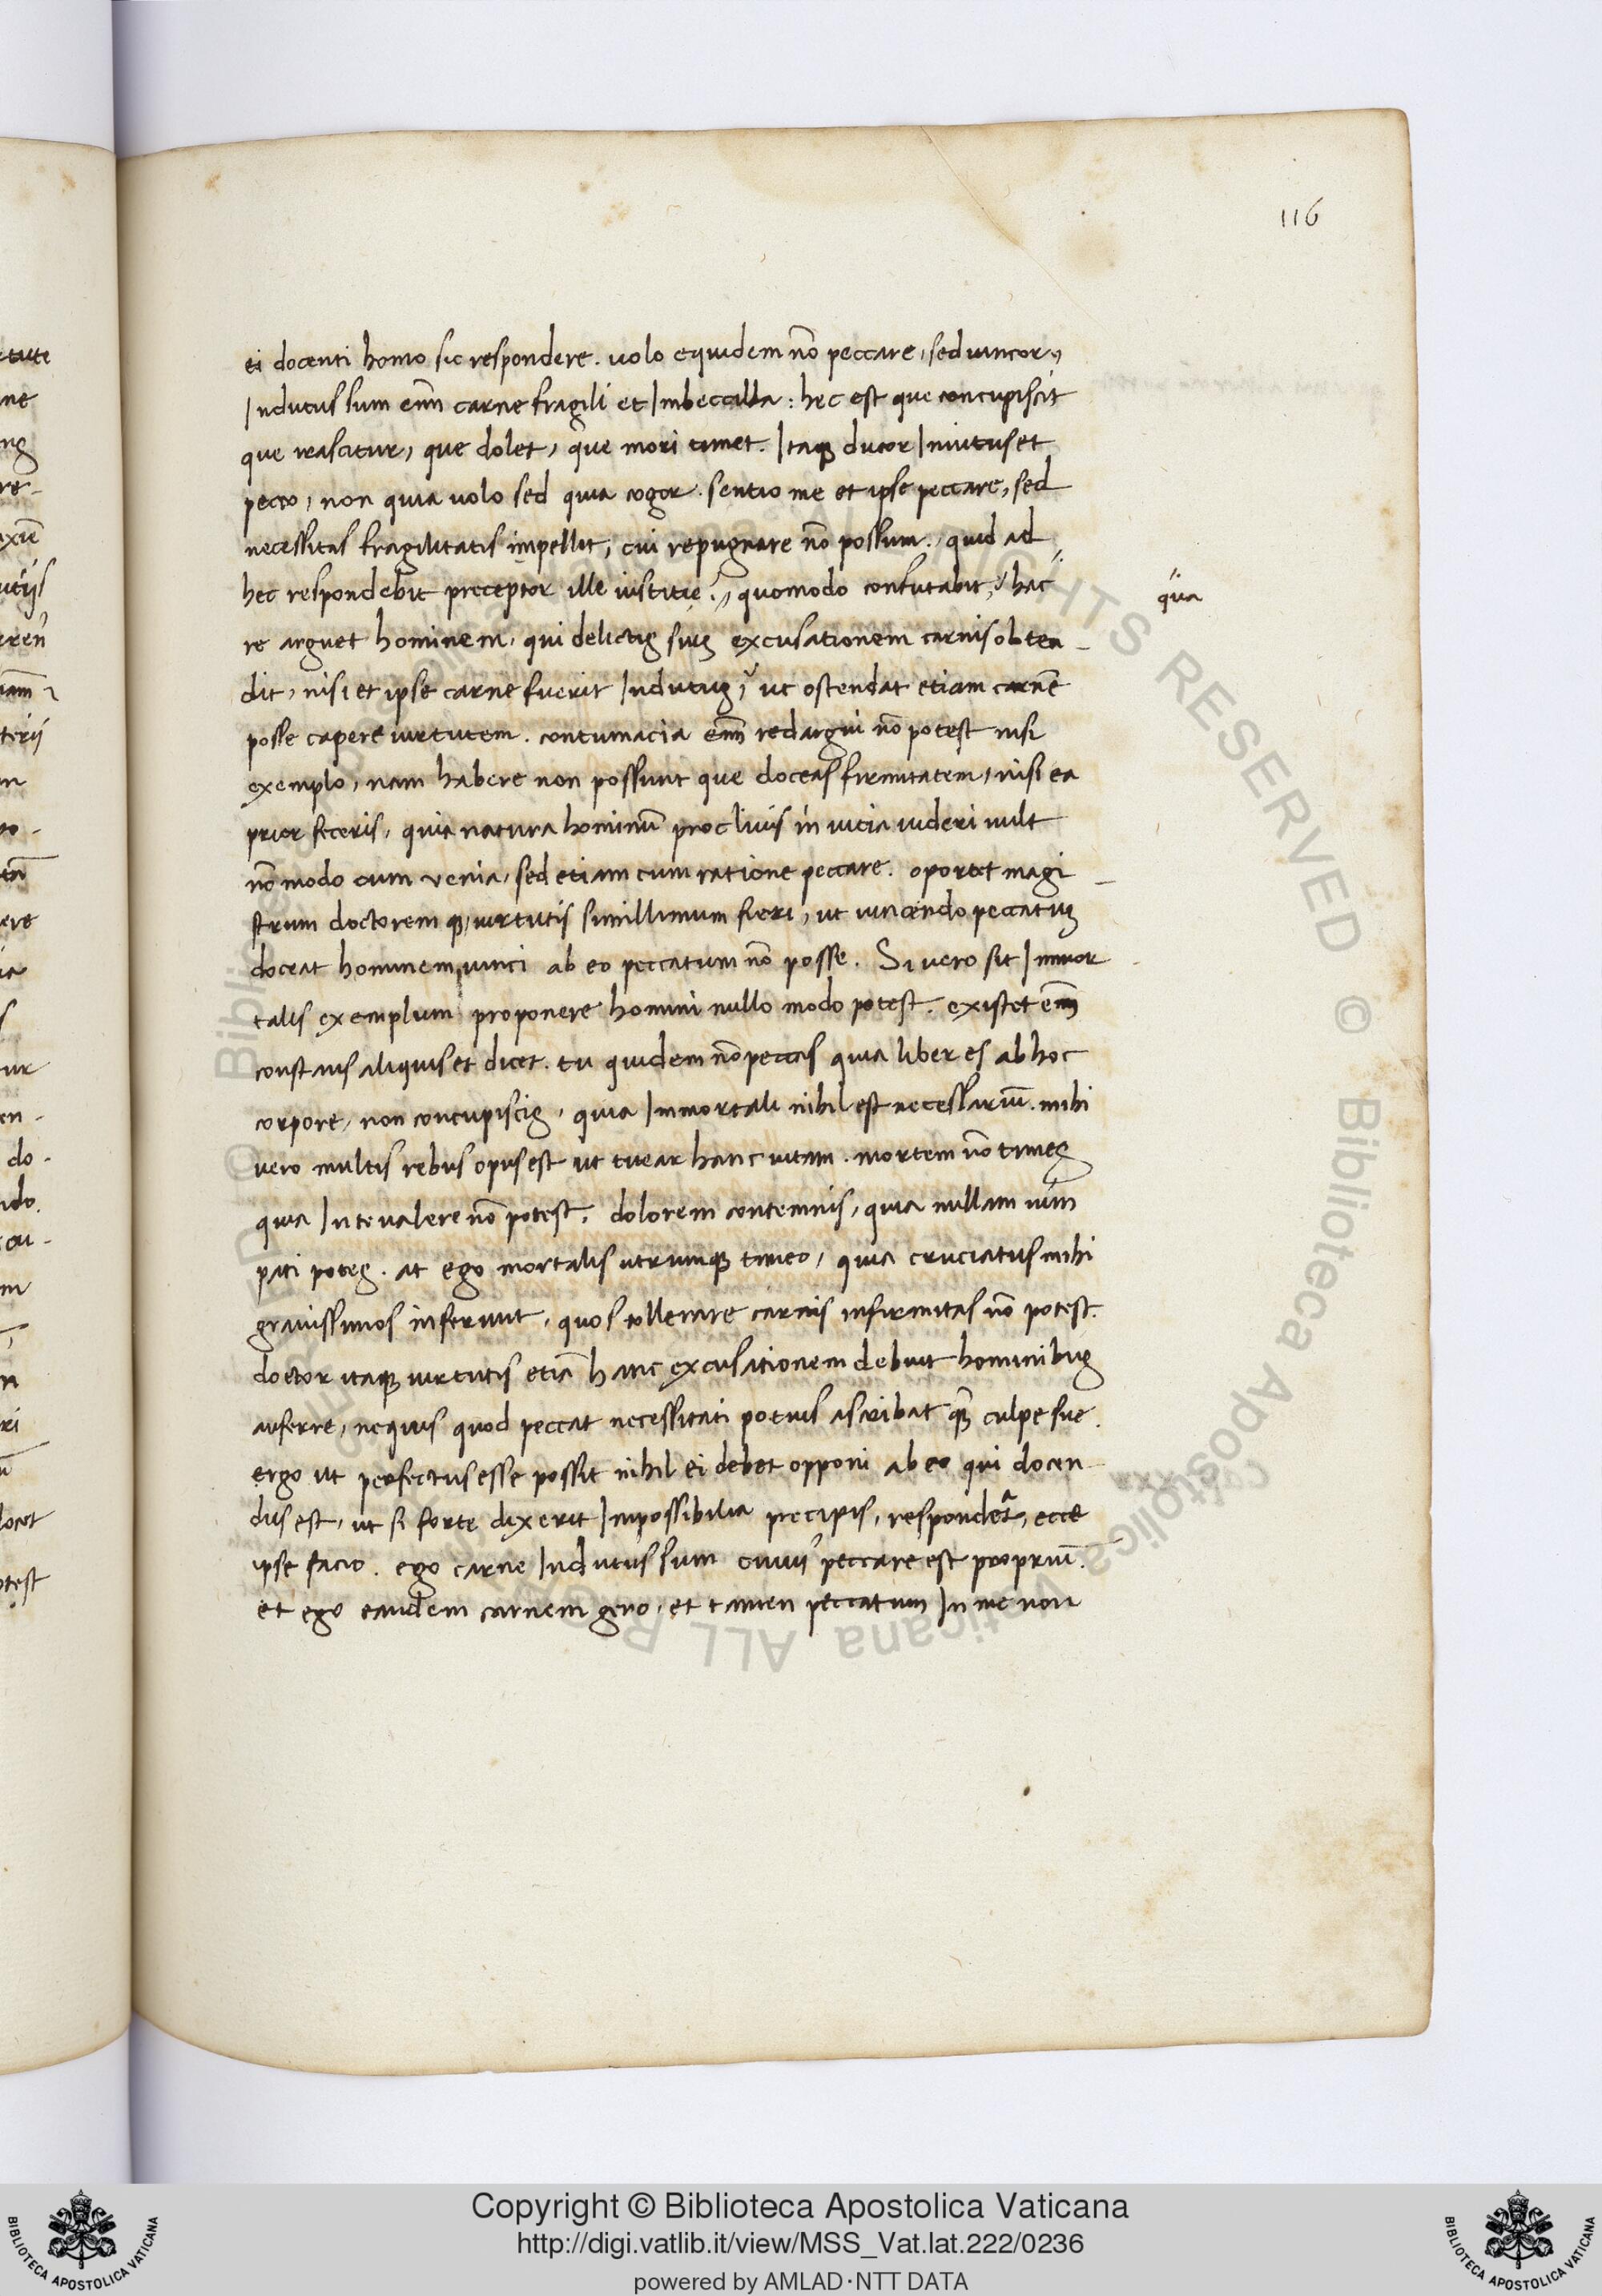 116
ei docenti homo sic respondere. uolo equidem nõ peccare, sed uincor,
Indutus sum enĩ carne fragili et Imbeccilla: hec est que concupiscit
que irascitur, que dolet, que mori timet. Itaqꝫ ducor Inuitus et
pecco, non quia uolo sed quia cogor. sentio me et ipse peccare, sed
necessitas fragilitatis impellit, cui repugnare nõ possum. quid ad
hec respondebit preceptor ille iustitię? quomodo confutabit, hac
qua
re arguet hominem, qui delictis suis excusationem carnis obten-
dit, nisi et ipse carne fuerit Indutus, ut ostendat etiam carnẽ
posse capere uirtutem. contumacia enĩ redargui nõ potest nisi
exemplo, nam habere non possunt que doceas firmitatem, nisi ea
prior feceris, quia natura hominũ procliuis in uicia uideri uult
nõ modo cum venia, sed etiam cum ratione peccare. oportet magi-
strum doctoremqꝫ uirtutis simillimum fieri, ut uincendo peccatum
doceat hominem uinci ab eo peccatum nõ posse. Si vero sit Immor-
talis exemplum proponere homini nullo modo potest. existet enĩ
constans aliquis et dicet. tu quidem nõ peccas quia liber es ab hoc
corpore, non concupiscis, quia Inmortali nihil est necessariũ. mihi
vero multis rebus opus est ut tuear hanc uitam. mortem nõ times
quia In te valere nõ potest. dolorem contemnis, quia nullam uim
pati potes. at ego mortalis utrumqꝫ timeo, quia cruciatus mihi
grauissimos inferunt, quos tollerare carnis infirmitas nõ potest.
doctor itaqꝫ uirtutis etiã hanc excusationem debuit hominibus
auferre, nequis quod peccat necessitati potius ascribat qꝫ̃ culpe sue.
ergo ut perfectus esse possit nihil ei debet opponi ab eo qui docen-
dus est, ut si forte dixerit Impossibilia precipis, respondeat, ecce
ipse facio. ego carne Indutus sum cuius peccare est propriũ.
et ego eandem carnem gero, et tamen peccatum In me non
Copyright © Biblioteca Apostolica Vaticana
http://digi.vatlib.it/view/MSS_Vat.lat.222/0236
powered by AMLAD·NTT DATA